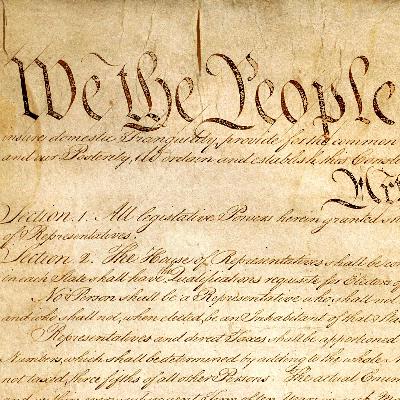 We the People
insure domestic Tranquility, provide for the common
and our Posterity, do ordain and establish this Consti
Section. 1. All legislative Powers herein granted s
of Representatives.
Section. 2. The House of Representatives shall be co
in each State shall have the Qualifications requisite for Electors o
No Person shall be a Representative who shall not
and who shall not, when elected, be an Inhabitant of that S
Representatives and direct Taxes shall be apportioned
Numbers, which shall be determined by adding to the whole N
not taxed, three fifths of all other Persons. The actual Enum